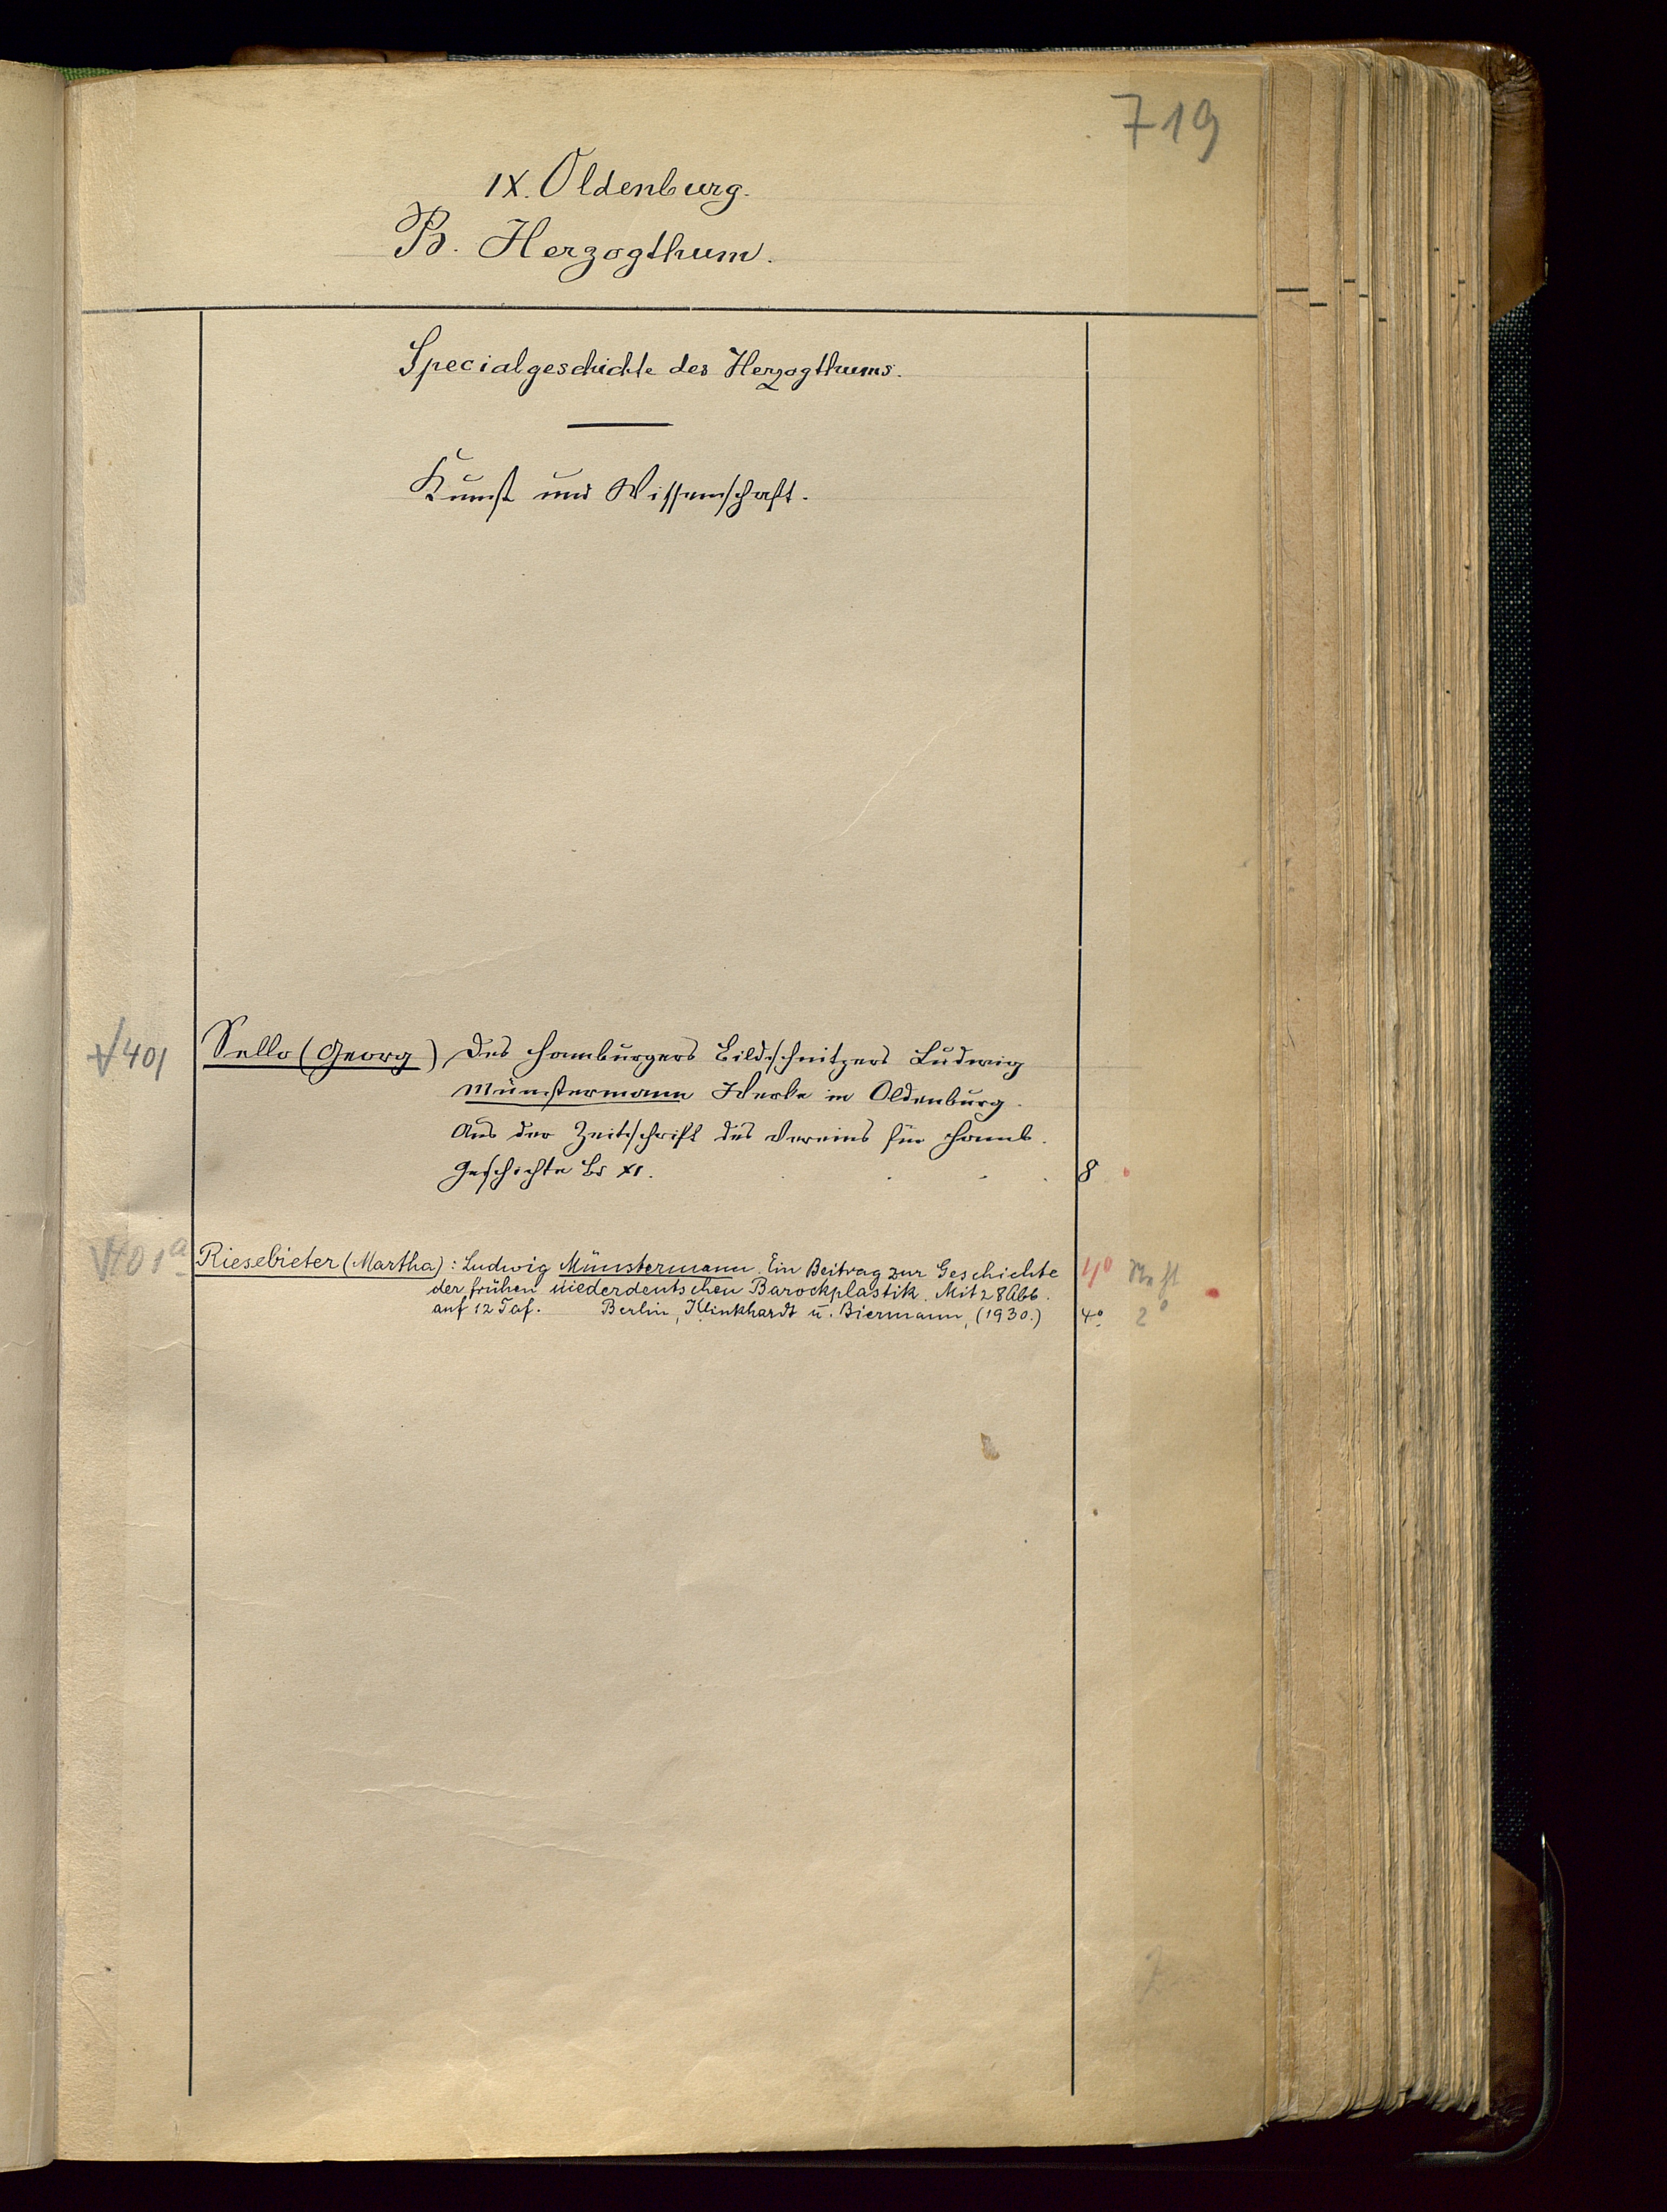 719
IX. Oldenburg.
B. Herzogthum.
Specialgeschichte des Herzogthums.
Kunst und Wissenschaft.
401
Sello (Georg) Des Hamburgers Bildschnitzers Ludwig
Münstermann Werke in Oldenburg.
Aus der Zeitschrift des Vereins für Hamb.
Geschichte Bd XI.
8
401a
Riesebieter (Martha): Ludwig Münstermann. Ein Beitrag zur Geschichte
4°
der frühen niederdeutschen Barockplastik. Mit 28 Abb.
auf 12 Taf. Berlin, Klinkhardt u. Biermann, (1930.)
4° 2°